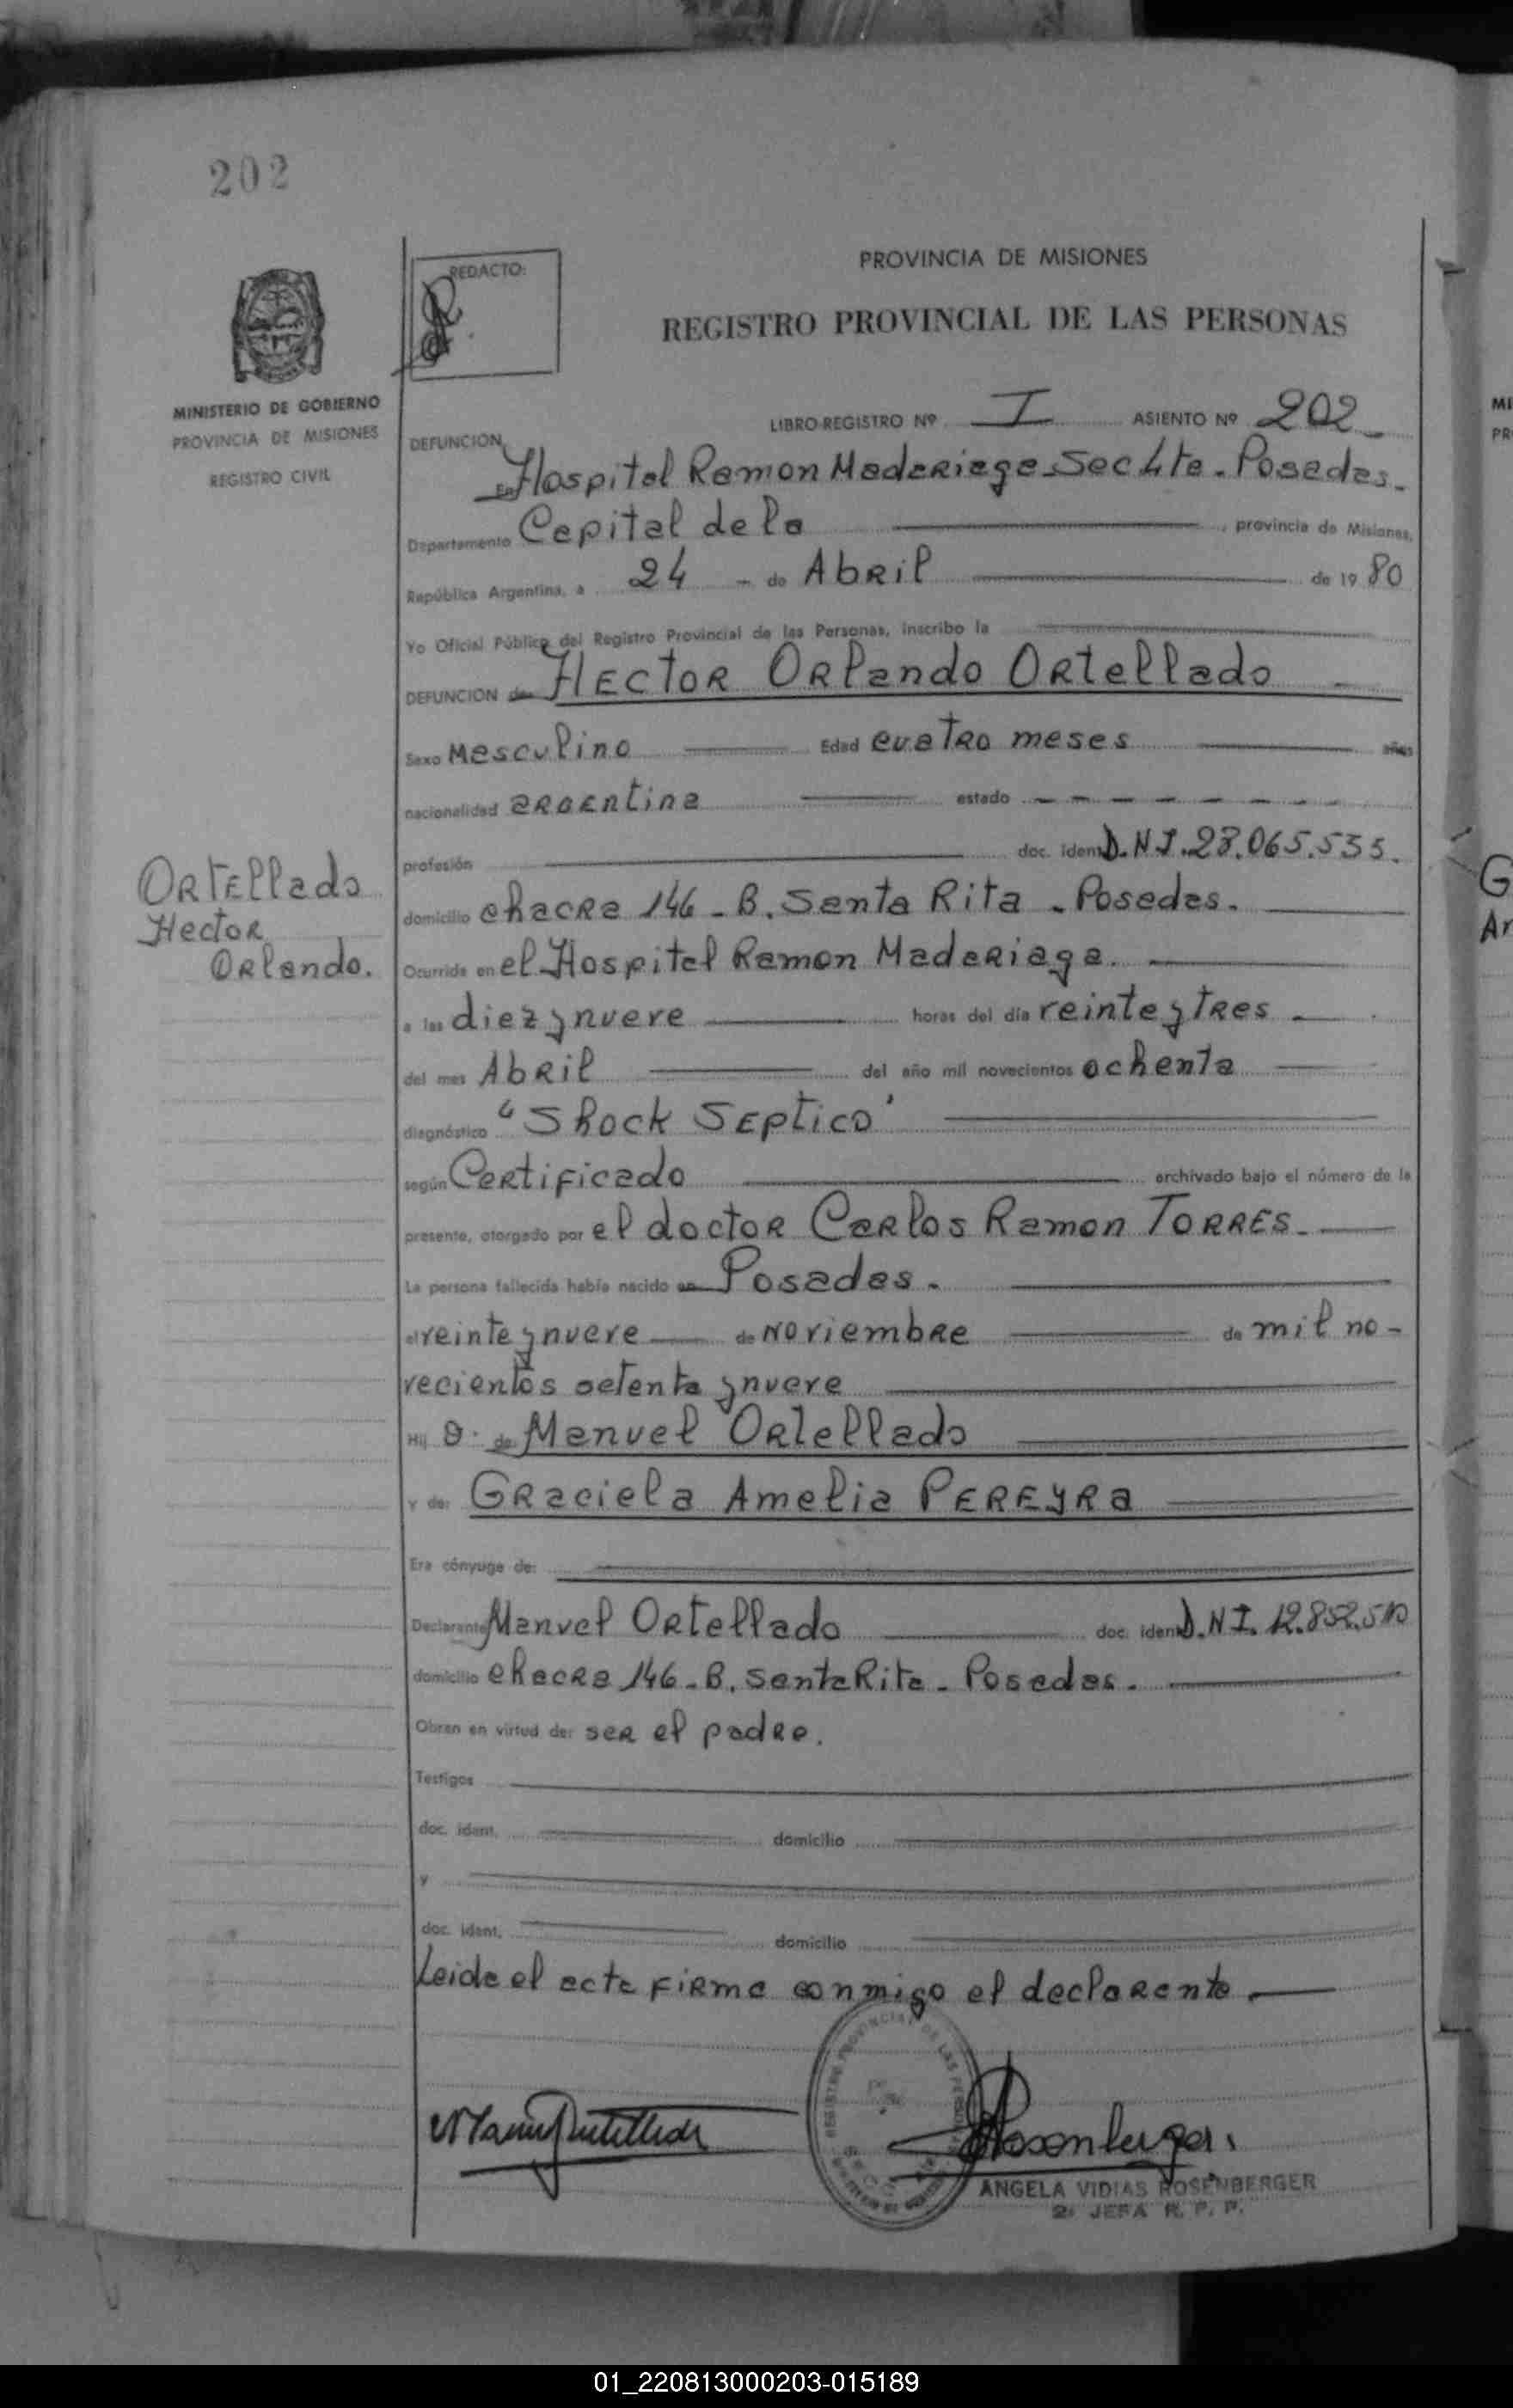 202
MINISTERIO DE GOBIERNO
PROVINCIA DE MISIONES
REGISTRO CIVIL
REDACTO:
PROVINCIA DE MISIONES
REGISTRO PROVINCIAL DE LAS PERSONAS
LIBRO-REGISTRO Nº I ASIENTO Nº 202
DEFUNCION
En Hospital Ramon Madariaga Sec 4ta - Posadas -
Departamento Capital de la provincia de Misiones,
República Argentina, a 24 - de Abril de 1980
Yo Oficial Público del Registro Provincial de las Personas, inscribo la
DEFUNCION de Hector Orlando Ortellado
Sexo Masculino Edad cuatro meses años
nacionalidad argentina estado
profesión doc. ident. D.N.I. 28.065.535.
Ortellado
Hector
Orlando.
domicilio chacra 146 - B. Santa Rita - Posadas.
Ocurrida en el Hospital Ramon Madariaga.
a las diez y nueve horas del día veinte y tres
del mes Abril del año mil novecientos ochenta
diagnóstico "Shock Septico"
según Certificado archivado bajo el número de la
presente, otorgado por el doctor Carlos Ramon TORRES.
La persona fallecida había nacido en Posadas.
el veinte y nueve de Noviembre de mil no-
vecientos setenta y nueve
Hij o de Manuel Ortellado
y de: Graciela Amelia PEREYRA
Era cónyuge de:
Declarante Manuel Ortellado doc. ident. D.N.I. 12.852.510
domicilio chacra 146 - B. Santa Rita - Posadas.
Obran en virtud de: ser el padre.
Testigos
doc. ident. domicilio
y
doc. ident. domicilio
Leida el acta firma conmigo el declarante.
REGISTRO PROVINCIAL DE LAS PERSONAS
ANGELA VIDIAS ROSENBERGER
2º JEFA R. P. P.
01_220813000203-015189